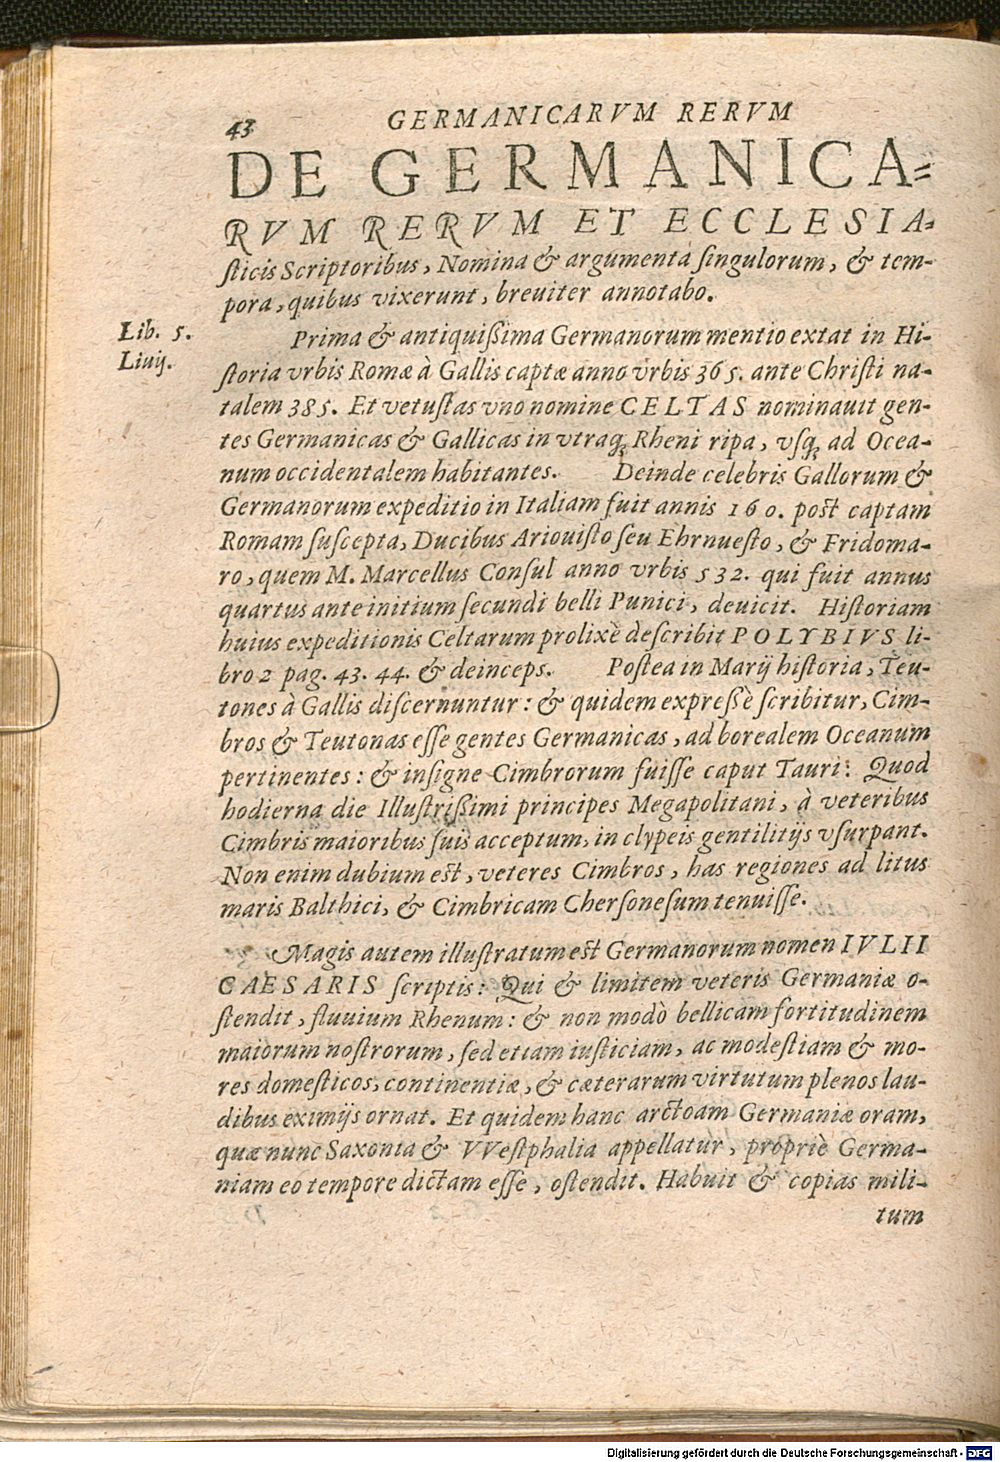 43 GERMANICARVM RERVM
DE GERMANICA=
RVM RERVM ET ECCLESIA-
ſticis Scriptoribus, Nomina & argumenta ſingulorum, & tem-
pora, quibus vixerunt, breuiter annotabo.
Lib. 5.
Liuij.
Prima & antiquißima Germanorum mentio extat in Hi-
ſtoria vrbis Romæ à Gallis captæ anno vrbis 365. ante Chriſti na-
talem 385. Et vetuſtas vno nomine CELTAS nominauit gen-
tes Germanicas & Gallicas in vtraq; Rheni ripa, vſq; ad Ocea-
num occidentalem habitantes. Deinde celebris Gallorum &
Germanorum expeditio in Italiam fuit annis 160. poſt captam
Romam ſuſcepta, Ducibus Ariouiſto ſeu Ehrnueſto, & Fridoma-
ro, quem M. Marcellus Conſul anno vrbis 532. qui fuit annus
quartus ante initium ſecundi belli Punici, deuicit. Hiſtoriam
huius expeditionis Celtarum prolixè deſcribit POLYBIVS li-
bro 2 pag. 43. 44. & deinceps. Poſtea in Marij hiſtoria, Teu-
tones à Gallis diſcernuntur: & quidem expreßè ſcribitur, Cim-
bros & Teutonas eſſe gentes Germanicas, ad borealem Oceanum
pertinentes: & inſigne Cimbrorum fuiſſe caput Tauri: Quod
hodierna die Illuſtrißimi principes Megapolitani, à veteribus
Cimbris maioribus ſuis acceptum, in clypeis gentilitijs vſurpant.
Non enim dubium eſt, veteres Cimbros, has regiones ad litus
maris Balthici, & Cimbricam Cherſoneſum tenuiſſe.
Magis autem illuſtratum eſt Germanorum nomen IVLII
CAESARIS ſcriptis: Qui & limitem veteris Germaniæ o-
ſtendit, fluuium Rhenum: & non modò bellicam fortitudinem
maiorum noſtrorum, ſed etiam iuſticiam, ac modeſtiam & mo-
res domeſticos, continentiæ, & cæterarum virtutum plenos lau-
dibus eximijs ornat. Et quidem hanc arctoam Germaniæ oram,
quæ nunc Saxonia & VVeſtphalia appellatur, propriè Germa-
niam eo tempore dictam eſſe, oſtendit. Habuit & copias mili-
tum
Digitalisierung gefördert durch die Deutsche Forschungsgemeinschaft - DFG